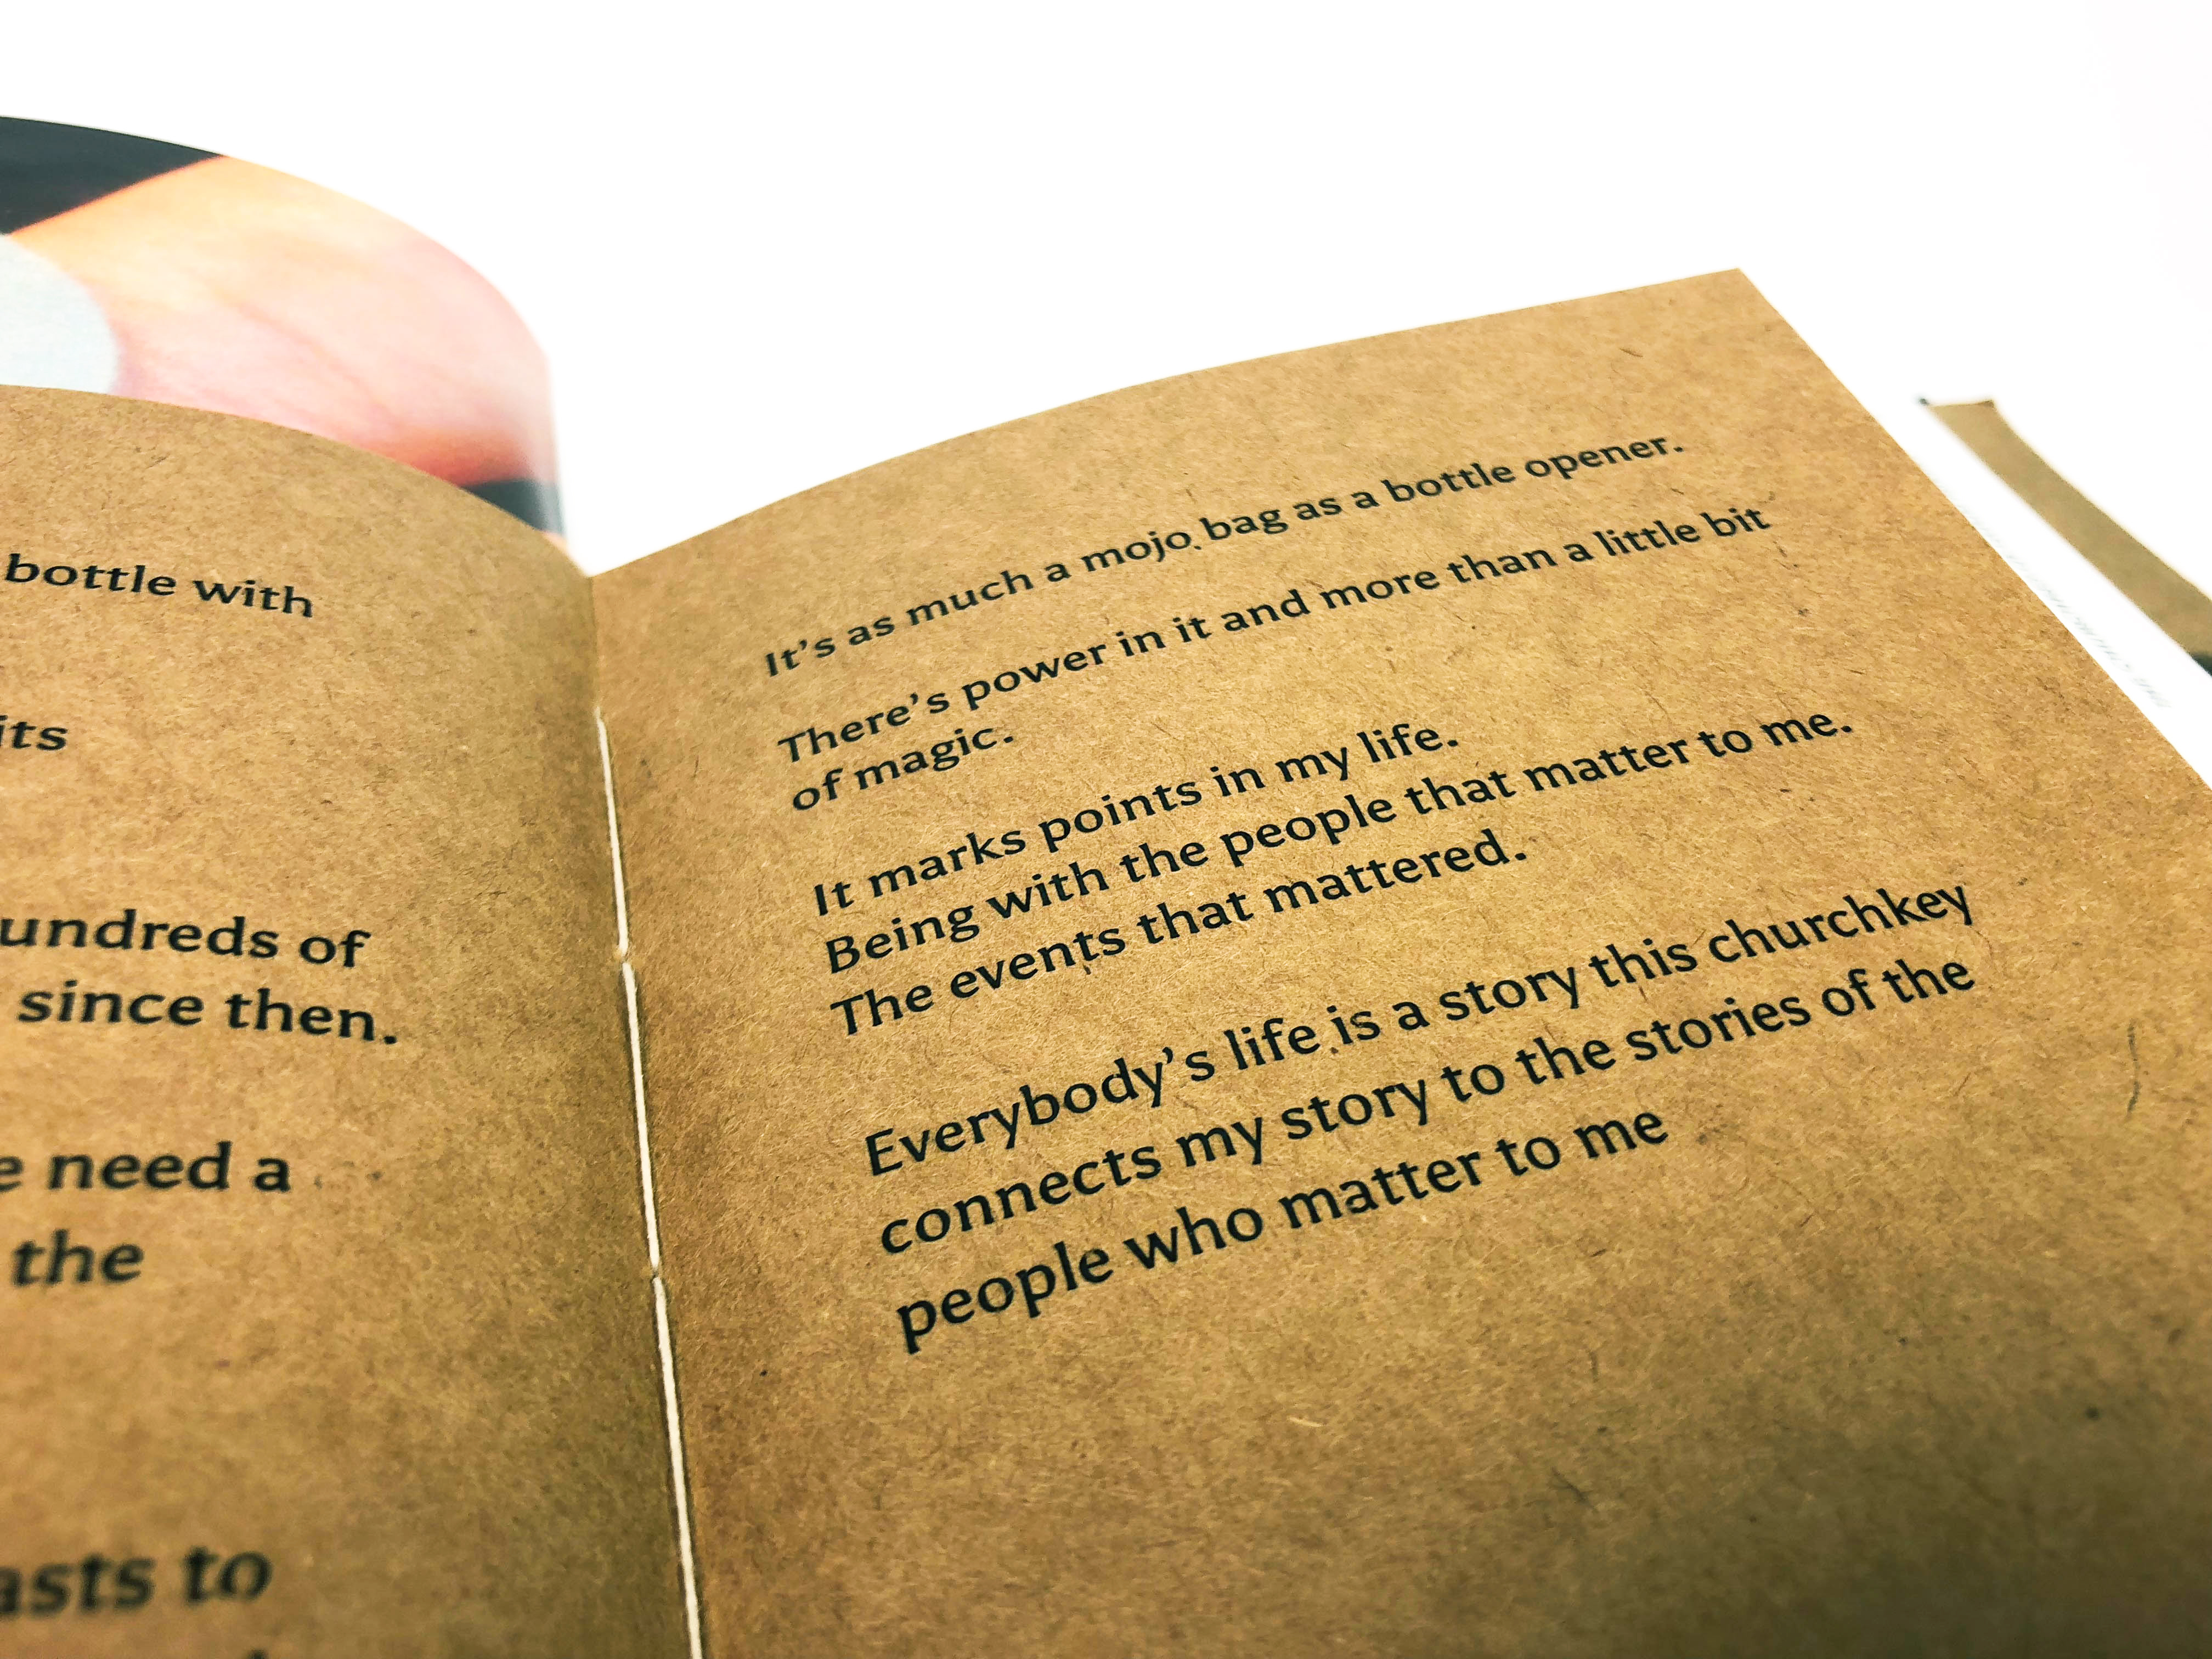 bottle with
its
undreds of
since then.
need a
the
asts to
It's as much a mojo bag as a bottle opener.
There's power in it and more than a little bit
of magic.
It marks points in my life.
Being with the people that matter to me.
The events that mattered.
Everybody's life is a story this churchkey
connects my story to the stories of the
people who matter to me